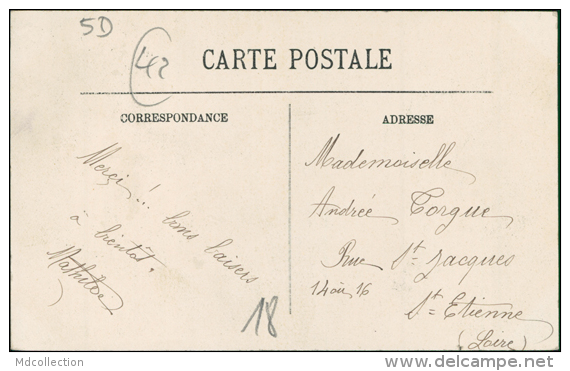 5D
42
CARTE POSTALE
CORRESPONDANCE
ADRESSE
Merçi!! bons baisers
à bientôt.
Mathilde
Mademoiselle
Andrée Torgue
Rue St. Jacques
14 ou 16
St= Etienne
(Loire)
18
Mdcollection
www.delcampe.net